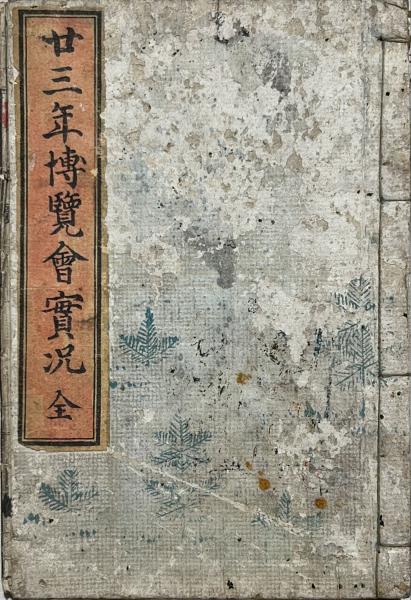 廿三年博覽會實況 全